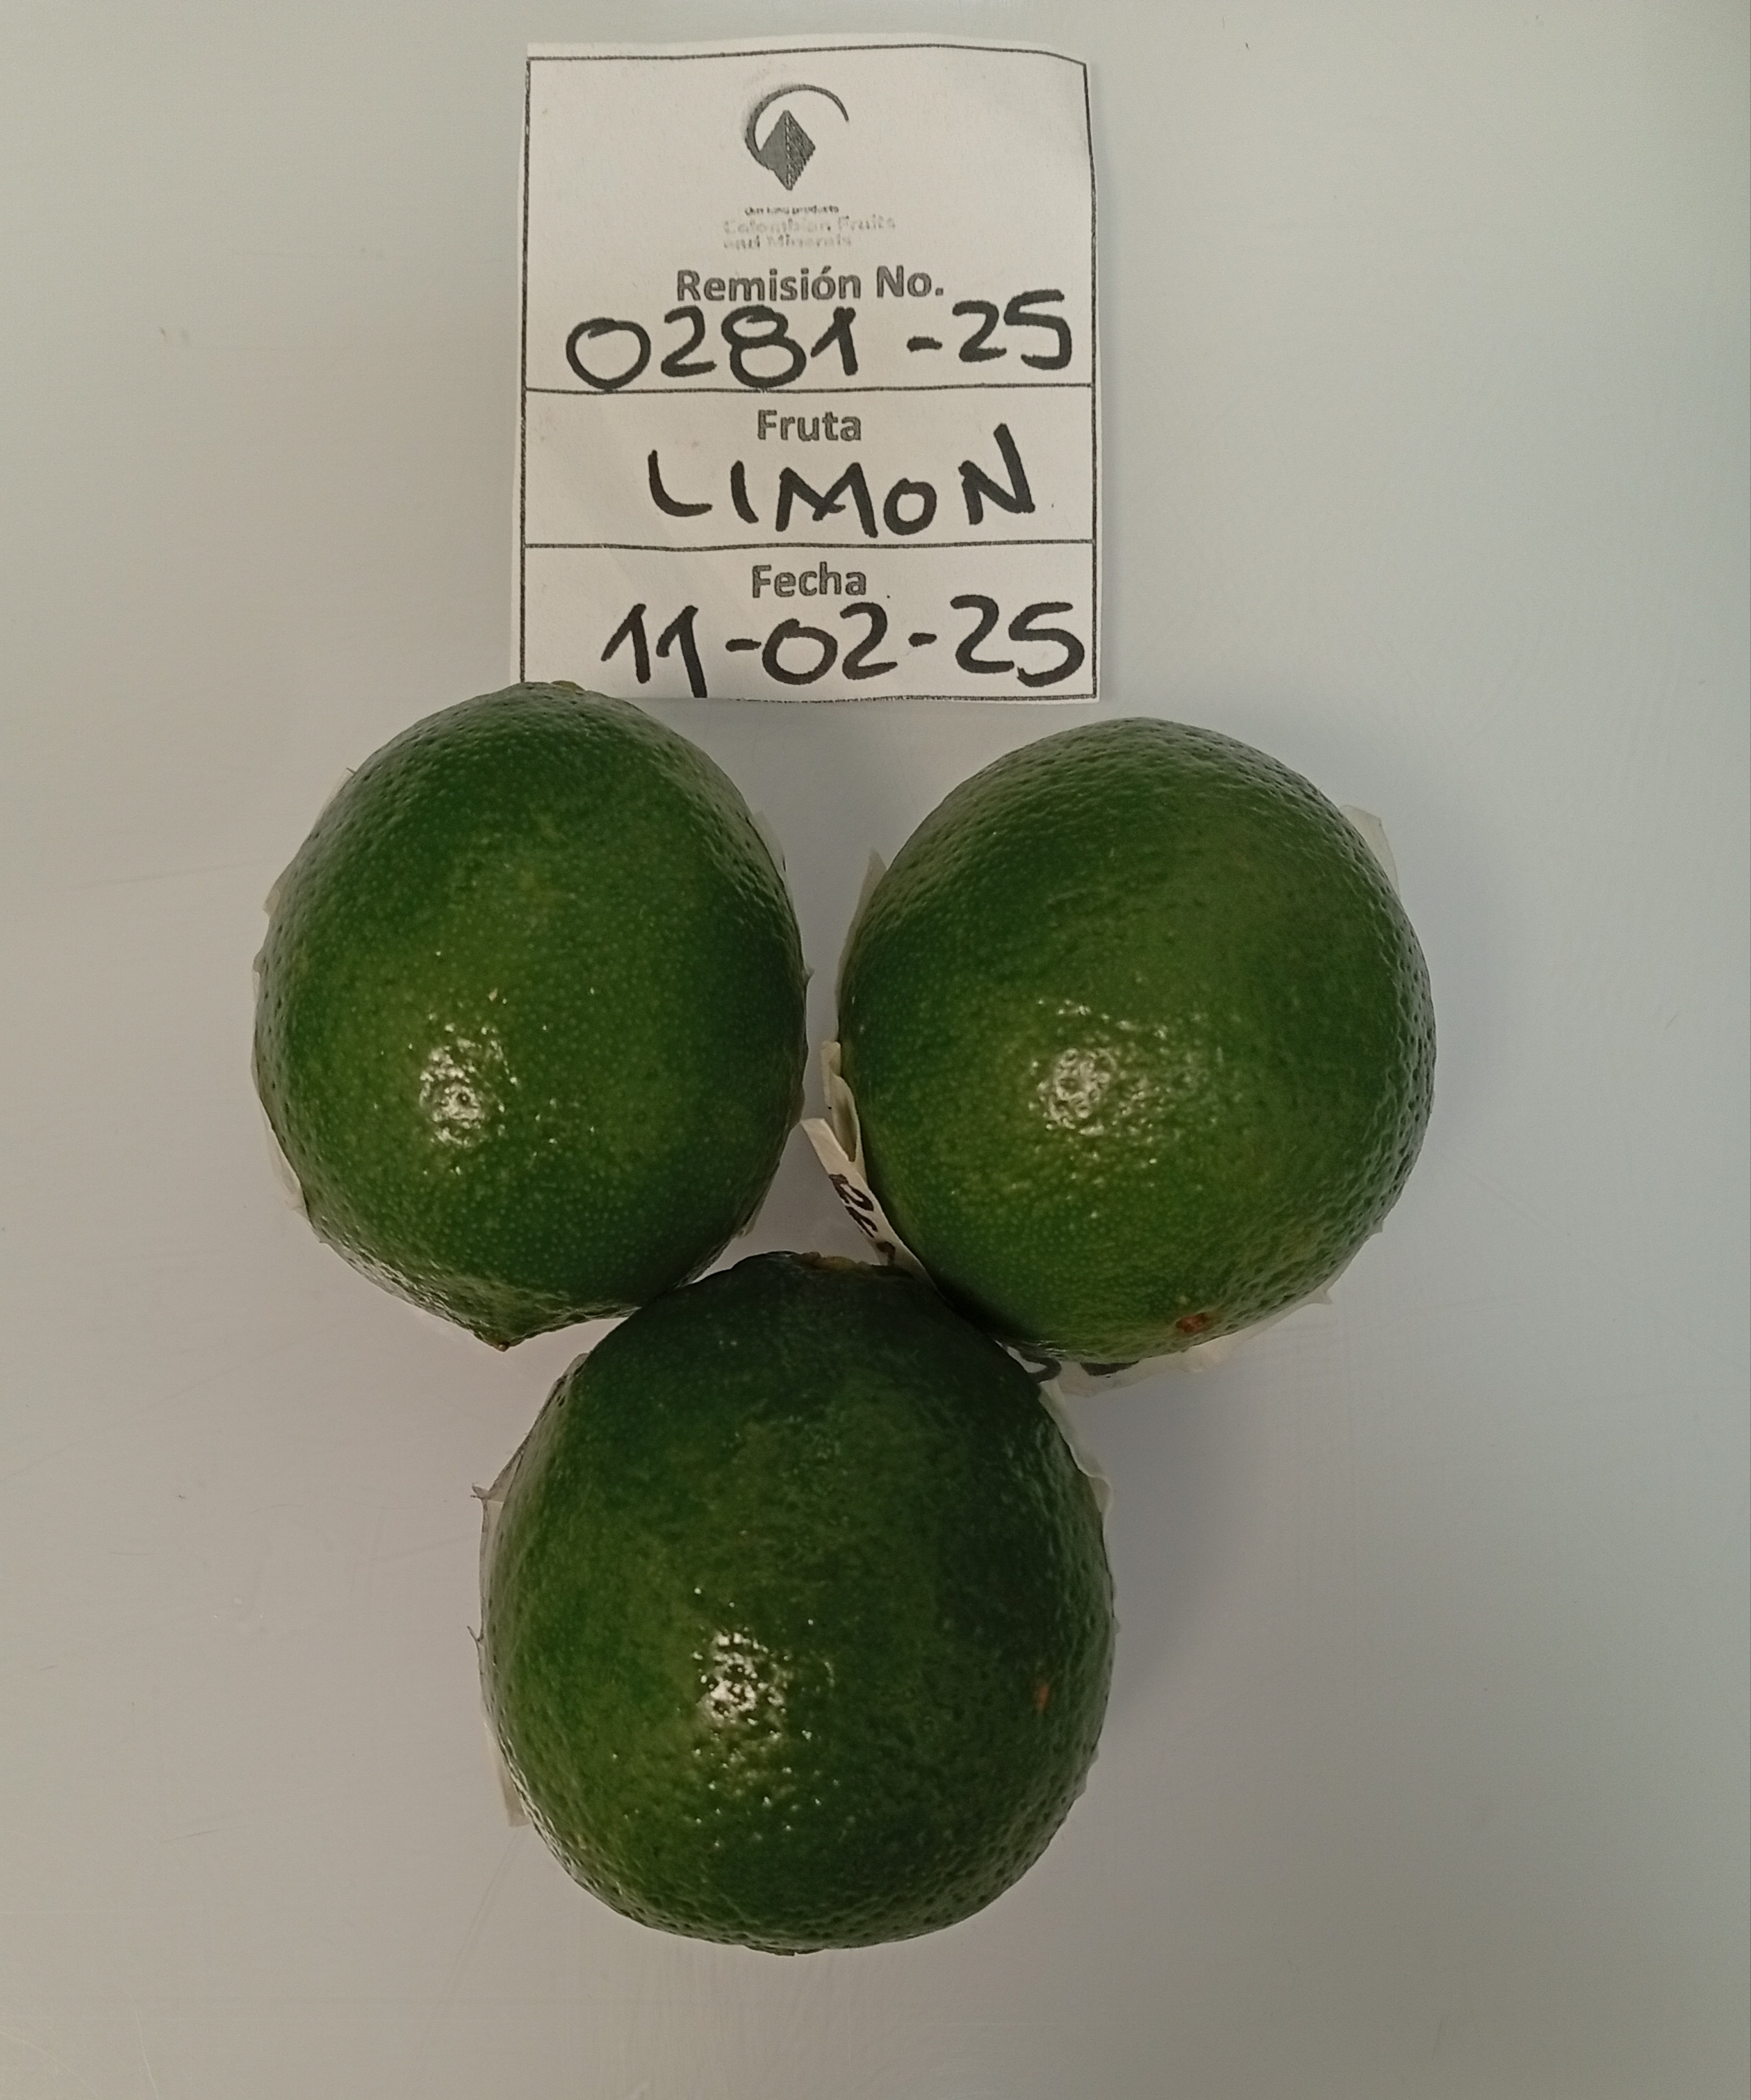 Our king products
Colombian Fruits
and Minerals
Remisión No.
0281-25
Fruta
LIMON
Fecha
11-02-25